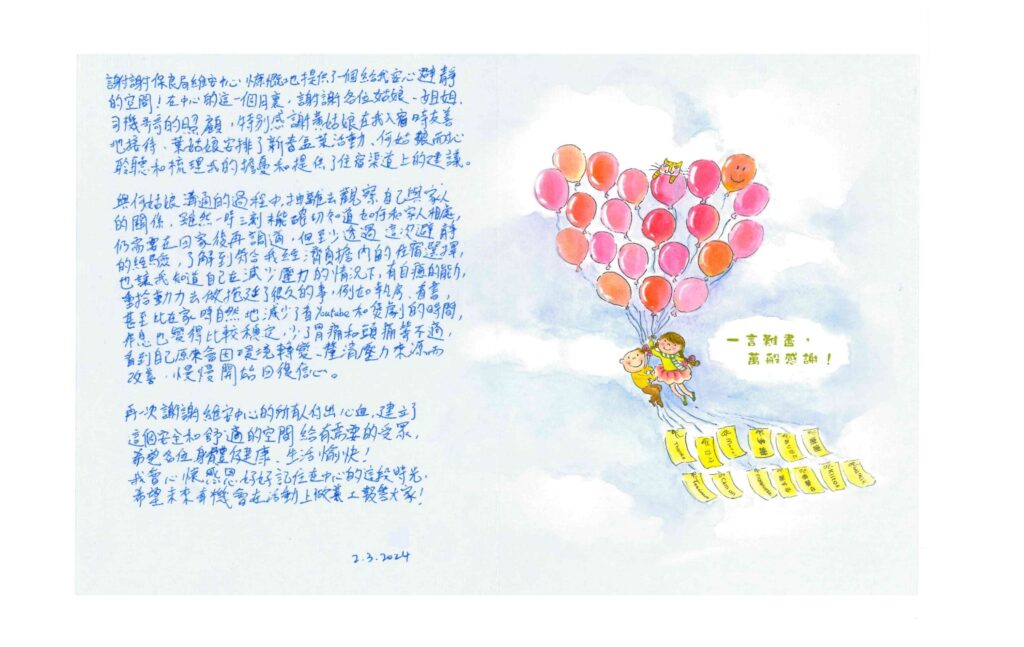 謝謝保良局維安中心慷慨地提供了一個給我安心避靜
的空間！在中心的這一個月裏，謝謝各位姑娘、姐姐、
司機哥哥的照顧，特別感謝黃姑娘在我入宿時友善
地接待、葉姑娘安排了新春盆菜活動、何姑娘耐心
聆聽和梳理我的擔憂和提供了住宿渠道上的建議。
與何姑娘溝通的過程中，抽離去觀察自己與家人
的關係，雖然一時三刻未能確切知道如何和家人相處，
仍需要在回家後再調適，但至少透過這次避靜
的經驗，了解到符合我經濟負擔內的住宿選擇，
也讓我知道自己在減少壓力的情況下，有自癒的能力，
重拾動力去做拖延了很久的事，例如執房、看書，
甚至比在家時自然地減少了看Youtube和煲劇的時間，
作息也變得比較穩定，少了胃痛和頭痛等不適，
看到自己原來會因環境轉變、釐清壓力來源而
改善，慢慢開始回復信心。
再一次謝謝維安中心的所有人付出心血，建立了
這個安全和舒適的空間給有需要的受眾，
希望各位身體健康、生活愉快！
我會心懷感恩，好好記住在中心的這段時光，
希望未來有機會在活動上做義工報答大家！
2.3.2024
一言難盡，
萬般感謝！